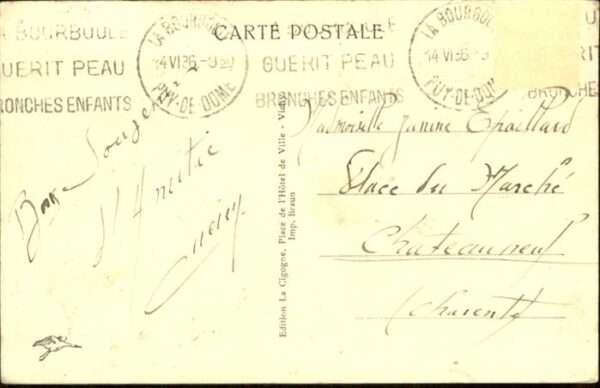 CARTE POSTALE
LA BOURBOULE
GUERIT PEAU
BRONCHES ENFANTS
LA BOURBOULE
14 VI 36
PUY-DE-DOME
GUERIT PEAU
BRONCHES ENFANTS
LA BOURBOULE
14 VI 36
PUY-DE-DOME
BRONCHES
Bon
d'Amitié
Mademoiselle Janine
Place du Marché
Chateauneuf
Charente
Edition La Cigogne, Place de l'Hôtel de Ville - Vichy
Imp. Braun